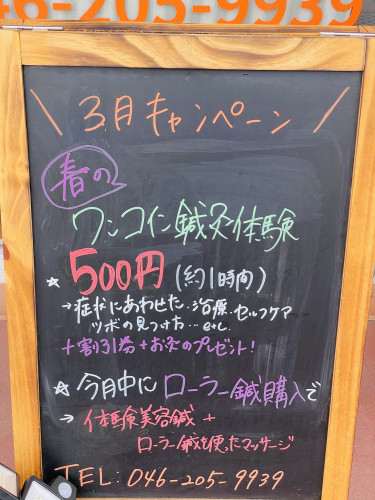 46-205-9939
\ 3月キャンペーン /
春の
ワンコイン鍼灸体験
☆ 500円 (約1時間)
→症状にあわせた治療・セルフケア
ツボの見つけ方…etc.
+割引券+お灸のプレゼント!
☆ 今月中にローラー鍼購入で
→ 体験美容鍼 +
ローラー鍼を使ったマッサージ
TEL: 046-205-9939